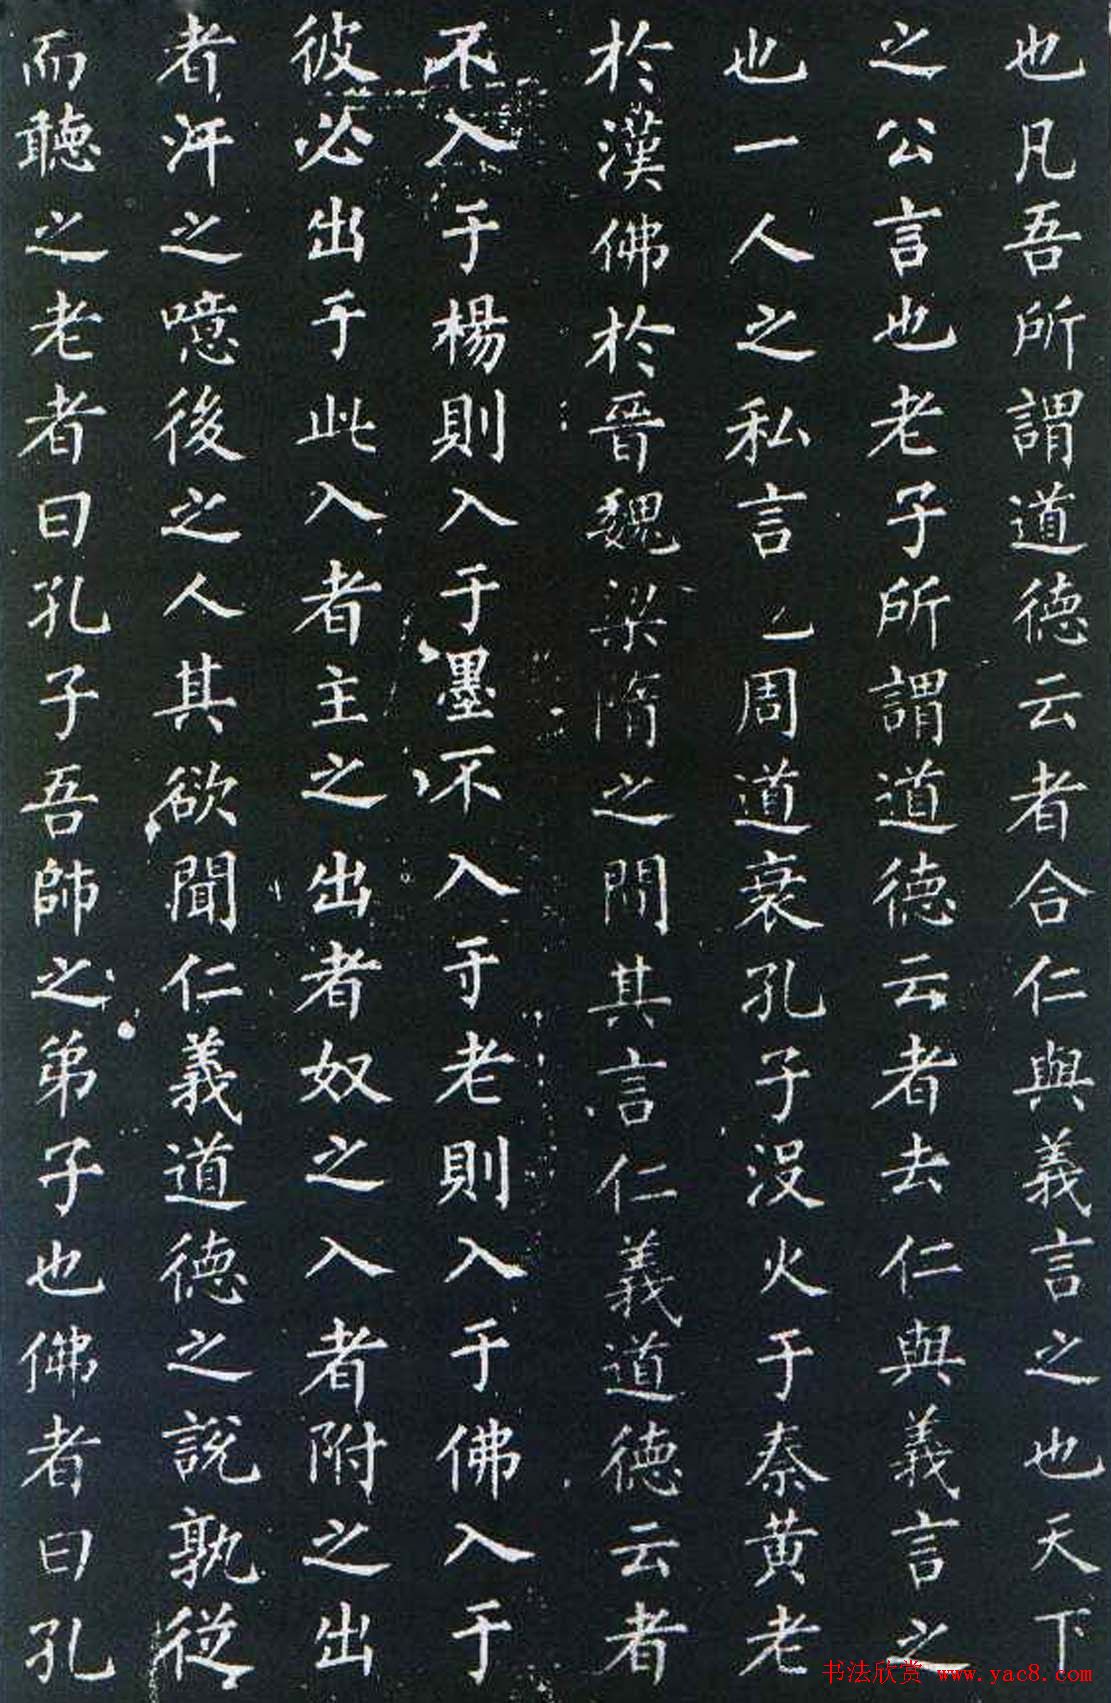 也凡吾所謂道德云者合仁與義言之也天下
之公言也老子所謂道德云者去仁與義言之
也一人之私言也周道衰孔子没火于秦黄老
於漢佛於晉魏梁隋之間其言仁義道德云者
不入于楊則入于墨不入于老則入于佛入于
彼必出于此入者主之出者奴之入者附之出
者汙之噫後之人其欲聞仁義道德之說孰從
而聽之老者曰孔子吾師之弟子也佛者曰孔
书法欣赏 www.yac8.com